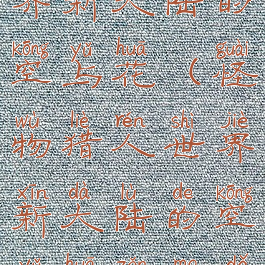 界新大陆的
kōng yú huā guài
空与花(怪
wù liè rén shì jiè
物猎人世界
xīn dà lù de kōng
新大陆的空